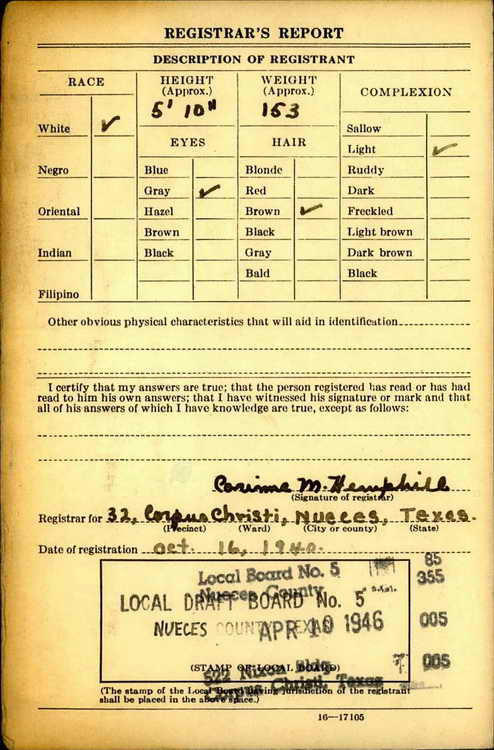 REGISTRAR'S REPORT
DESCRIPTION OF REGISTRANT
RACE
HEIGHT (Approx.)
WEIGHT (Approx.)
COMPLEXION
5' 10"
153
White ✓
Sallow
EYES
HAIR
Light ✓
Negro
Blue
Blonde
Ruddy
Gray ✓
Red
Dark
Oriental
Hazel
Brown ✓
Freckled
Brown
Black
Light brown
Indian
Black
Gray
Dark brown
Bald
Black
Filipino
Other obvious physical characteristics that will aid in identification
I certify that my answers are true; that the person registered has read or has had
read to him his own answers; that I have witnessed his signature or mark and that
all of his answers of which I have knowledge are true, except as follows:
Corinne M. Hemphill
(Signature of registrar)
Registrar for 32, Corpus Christi, Nueces, Texas.
(Precinct) (Ward) (City or county) (State)
Date of registration Oct. 16, 1940.
Local Board No. 5
85
Nueces County
355
LOCAL DRAFT BOARD No. 5
NUECES COUNTY TEXAS
APR 10 1946
005
(STAMP OF LOCAL BOARD)
005
522 Nixon Bldg.
Corpus Christi, Texas
(The stamp of the Local Board having jurisdiction of the registrant
shall be placed in the above space.)
16—17105